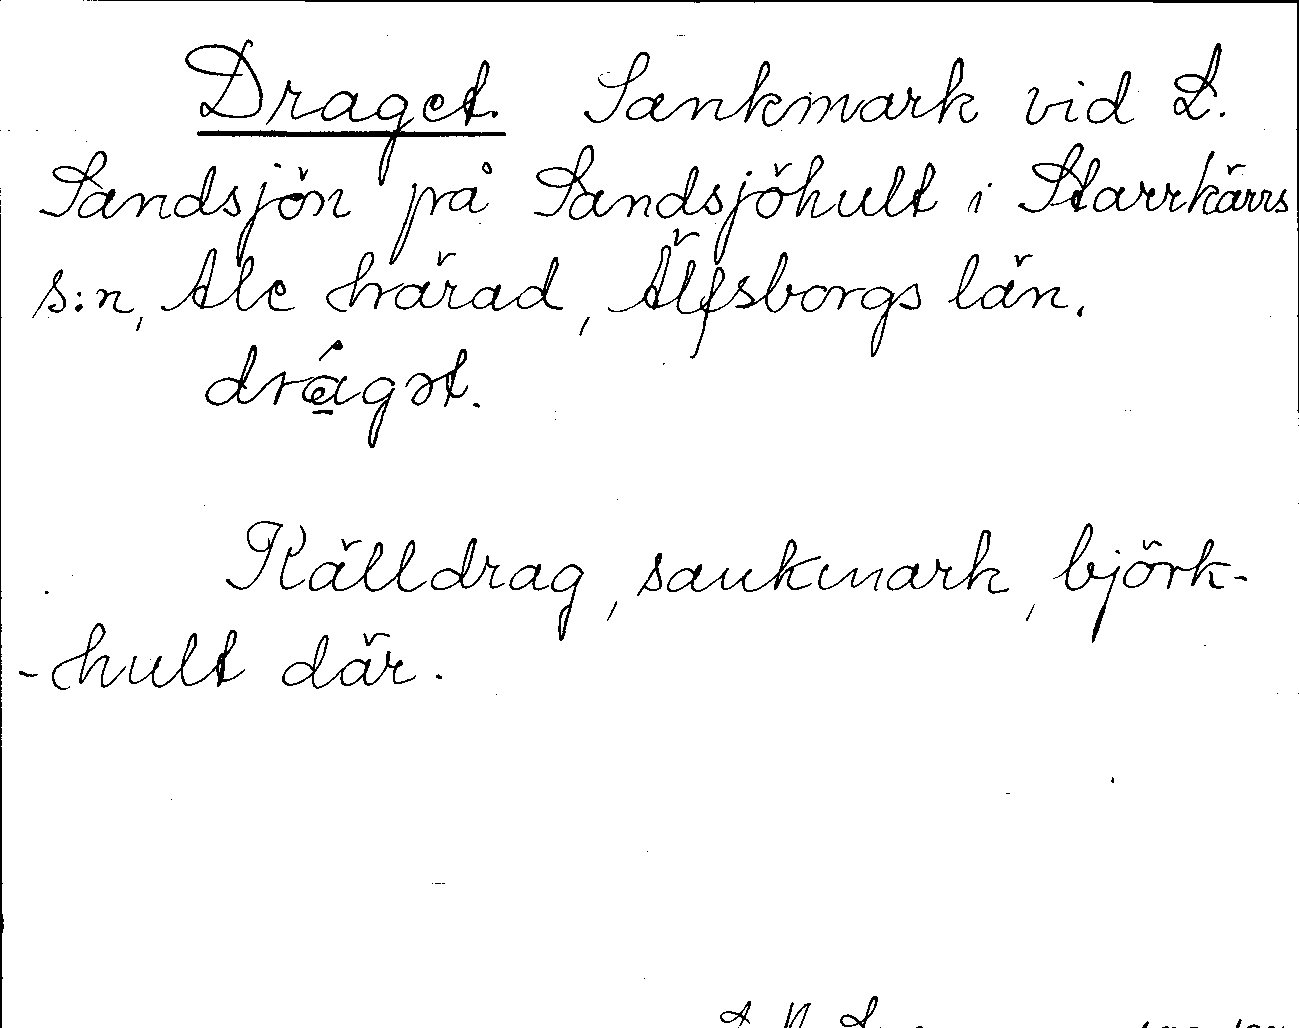 Draget. Sankmark vid L.
Sandsjön på Sandsjöhult i Starrkärrs
s:n, Ale härad, Älfsborgs län.
drágət.
Källdrag, sankmark, björk-
-hult där.